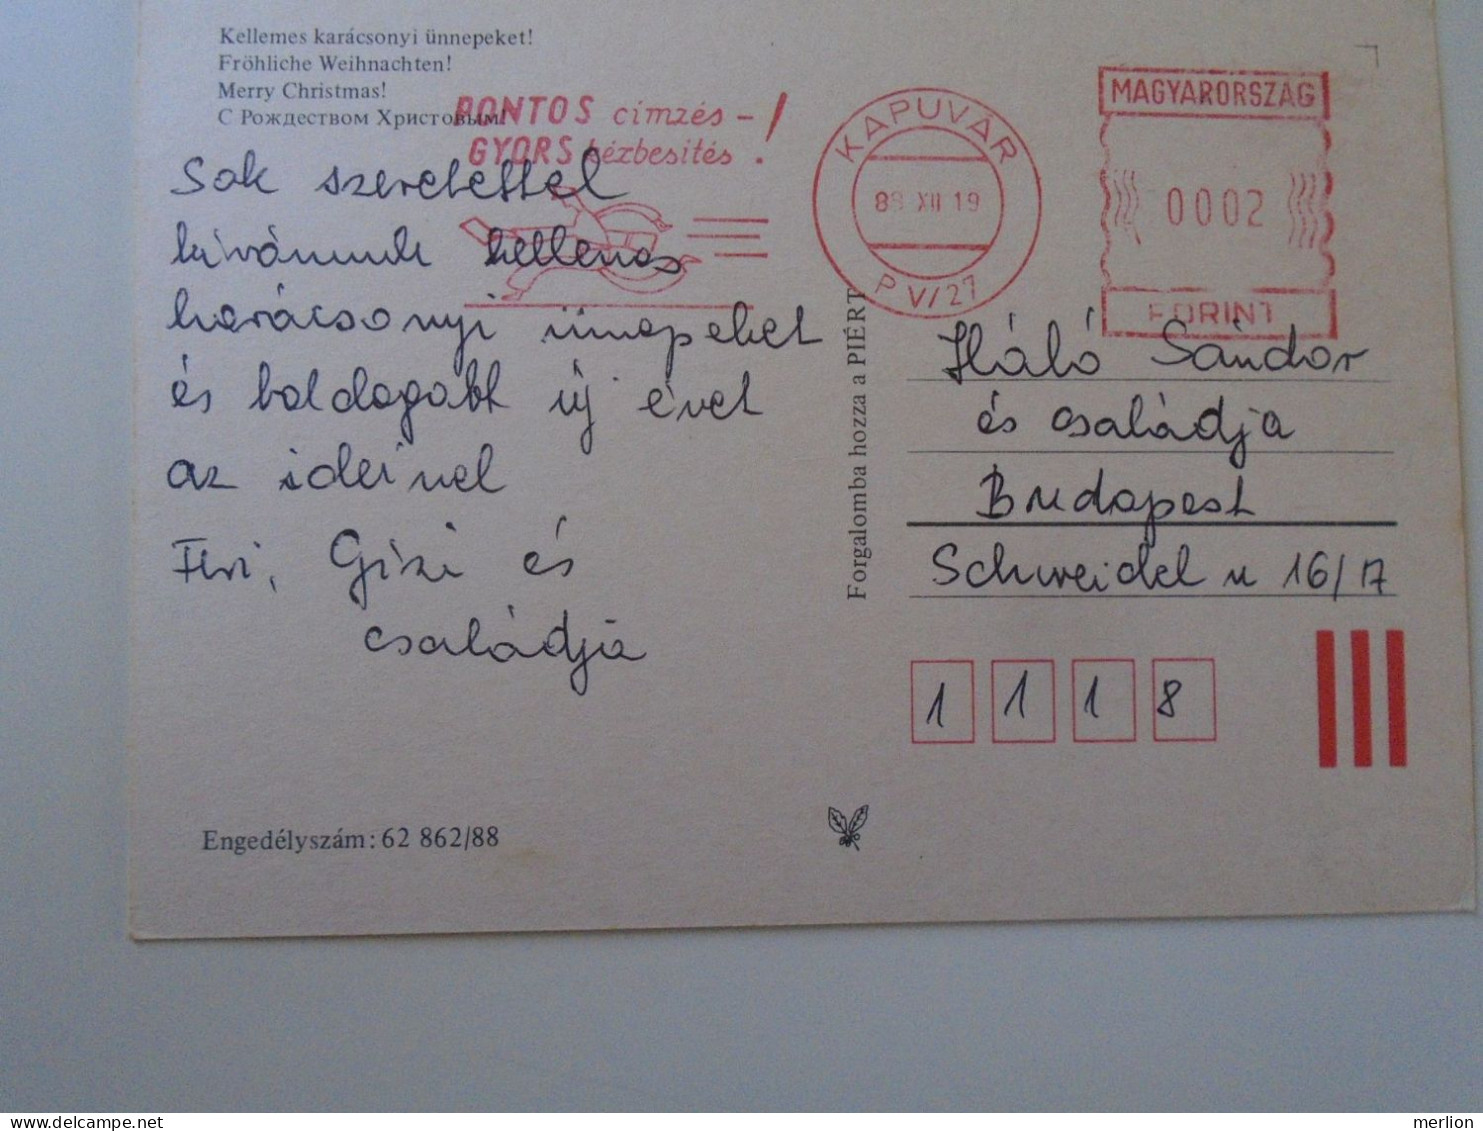 Kellemes karácsonyi ünnepeket!
Fröhliche Weihnachten!
Merry Christmas!
С Рождеством Христовым!
PONTOS címzés -
GYORS kézbesítés !
KAPUVÁR
88 XII 19
P VI/27
MAGYARORSZÁG
0002
FORINT
Sok szeretettel
kívánunk kellemes
karácsonyi ünnepeket
és boldogabb új évet
az ideinel
Feri, Gizi és
családja
Forgalomba hozza a PIÉRT
Háló Sándor
és családja
Budapest
Schweidel u 16/A
1 1 1 8
Engedélyszám: 62 862/88
delcampe.net
merlion